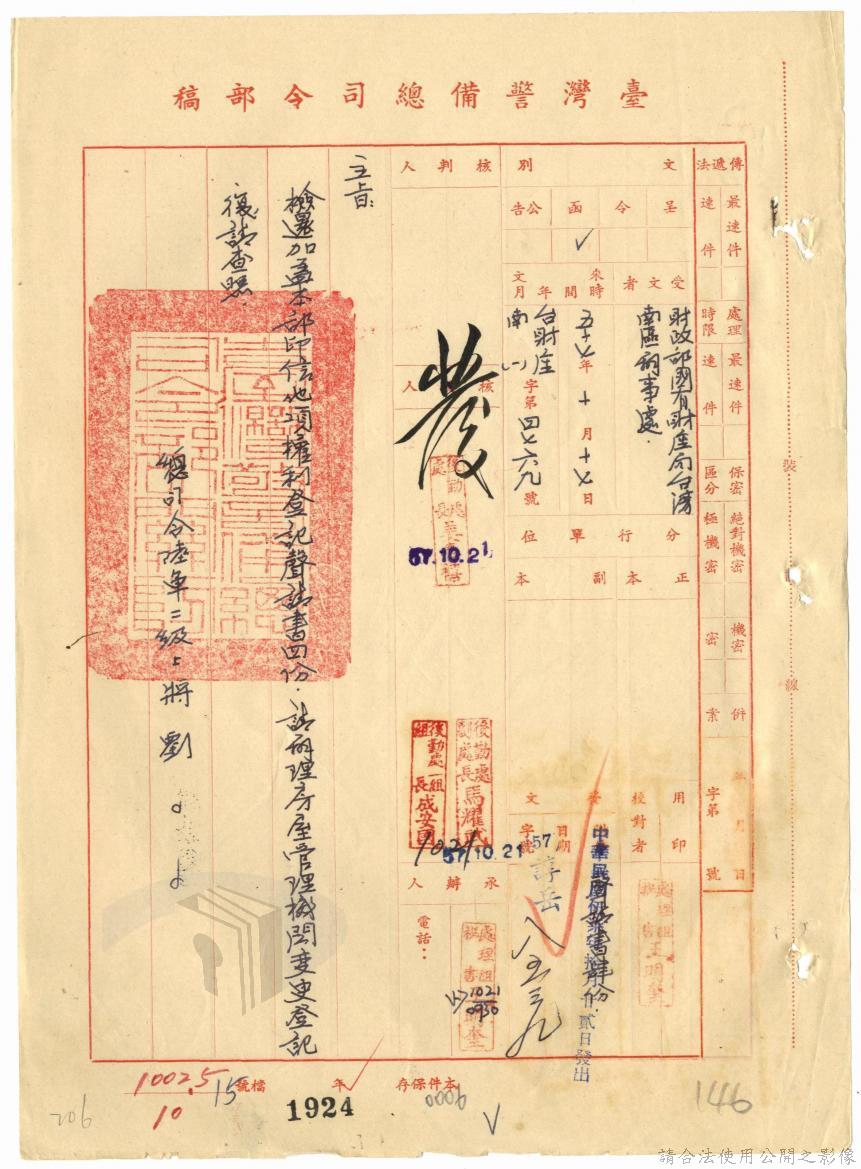 臺灣警備總司令部稿
傳遞法
最速件
速件
處理時限
最速件
速件
保密區分
絕對機密
極機密
機密
密
併案
年 月 日
字第 號
文別
呈
令
函 ✓
公告
受文者
財政部國有財產局台灣
南區辦事處.
來文時間年月
五十七年十月十七日
台財產南(一)字第四七六九號
分行單位
正本
副本
用印
校對者
發文
日期
字號
中華民國
貳日發出
57
諄岳
八五三九
核判人
核人
57.10.21
後勤處副處長馬耀武
後勤處一組組長成安國
1021
57.10.21
承辦人
電話：
1021
0930
主旨:
檢還加蓋本部印信他項權利登記聲請書四份.請辦理房屋管理機關變更登記
復請查照.
總司令陸軍二級上將劉○○
裝
線
本件保存 年
檔號
15
1002.5
10
1924
0006
206
146
請合法使用公開之影像